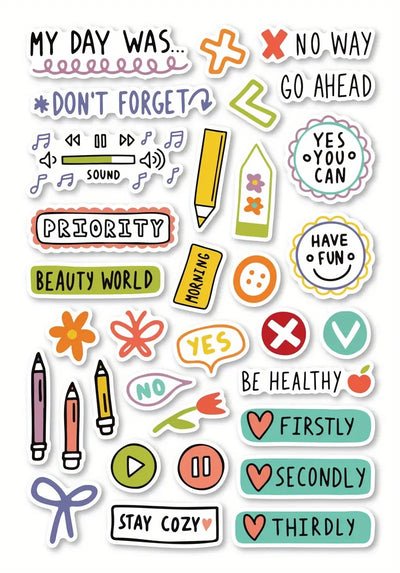 MY DAY WAS...
NO WAY
GO AHEAD
*DON'T FORGET
YES
YOU
CAN
SOUND
PRIORITY
HAVE
FUN
BEAUTY WORLD
MORNING
YES
BE HEALTHY
NO
FIRSTLY
SECONDLY
STAY COZY
THIRDLY